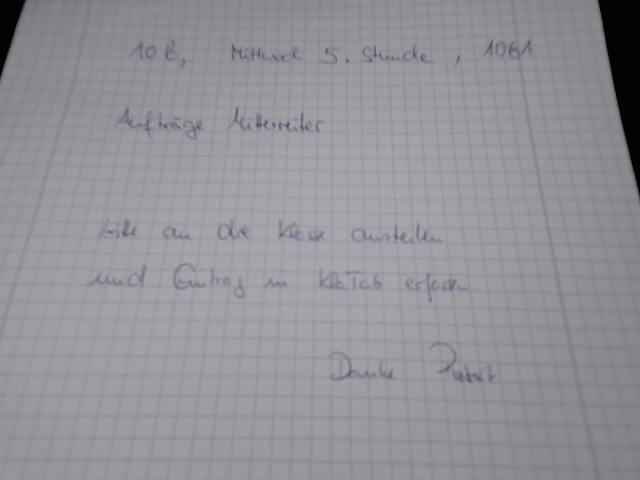 10 b, Mittwoch 5. Stunde, 1061
Aufträge Mitterreiter
bitte an die Klasse austeilen
und Eintrag in KlaTab erfassen.
Danke